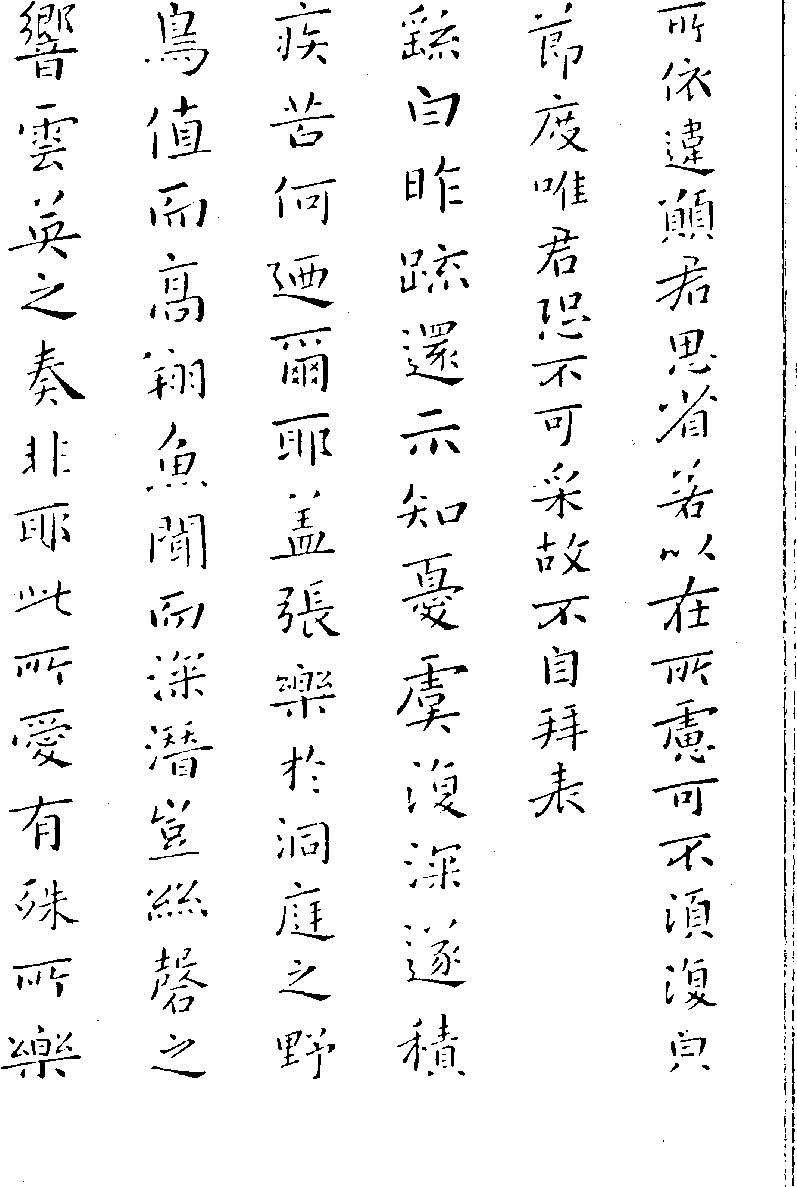 所依違願君思省若以在所慮可不須復皃
節度唯君恐不可采故不自拜表
繇白昨疏還示知憂虞復深遂積
疾苦何迺爾耶盖張樂於洞庭之野
鳥值而高翔魚聞而深潛豈絲磬之
響雲英之奏非耶此所愛有殊所樂